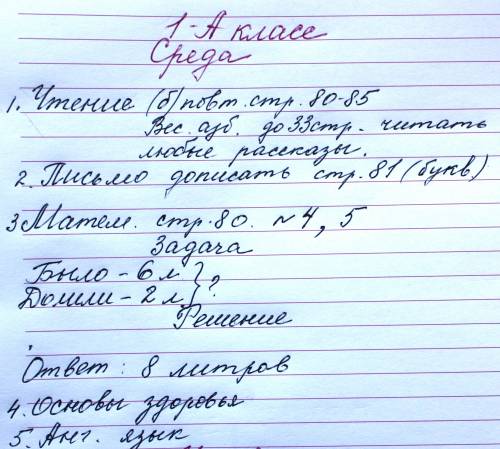 1-А класс
Среда
1. Чтение (б) повт. стр. 80-85
Вес. азб. до 33 стр. читать
любые рассказы.
2. Письмо дописать стр. 81 (букв)
3 Матем. стр. 80. № 4, 5
Задача
Было - 6 л } ?
Долили - 2 л
Решение
Ответ : 8 литров
4. Основы здоровья
5. Анг. язык